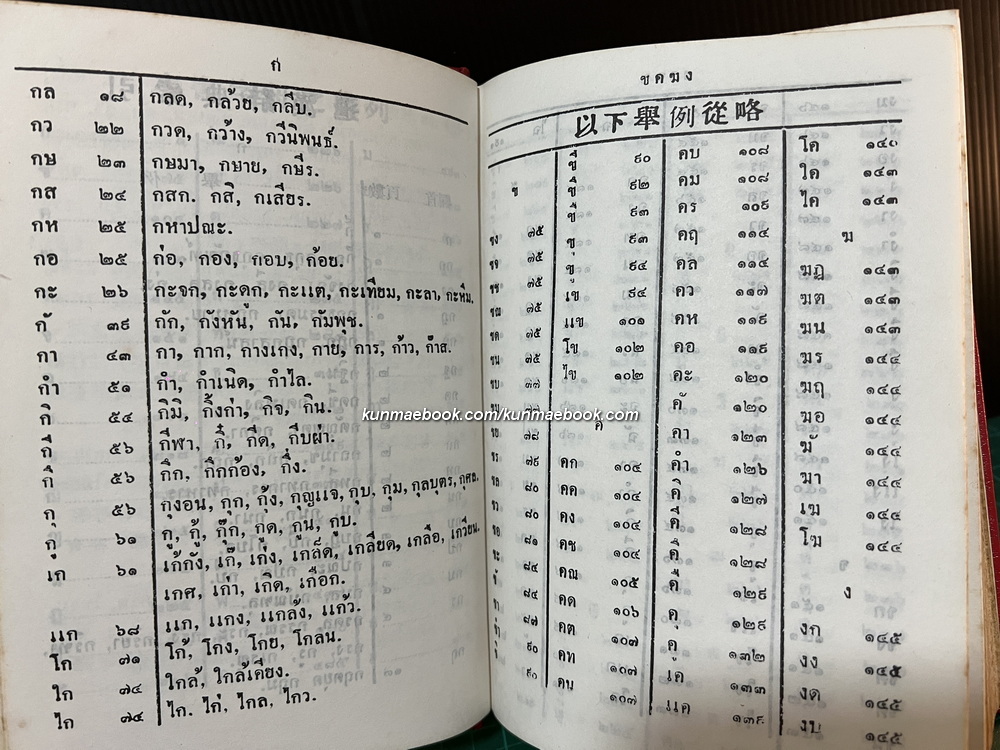 ก
กล ๑๘ กลด, กล้วย, กลีบ.
กว ๒๒ กวด, กว้าง, กวีนิพนธ์.
กษ ๒๓ กษมา, กษาย, กษีร.
กส ๒๔ กสก. กสิ, กเสียร.
กห ๒๕ กหาปณะ.
กอ ๒๕ ก่อ, กอง, กอบ, ก้อย.
กะ ๒๖ กะจก, กะดูก, กะแต, กะเทียม, กะลา, กะหิ่ม.
กั ๓๙ กัก, กังหัน, กัน, กัมพุช.
กา ๔๓ กา, กาก, กางเกง, กาย, การ, ก้าว, ก๊าส.
กำ ๕๑ กำ, กำเนิด, กำไล.
กิ ๕๔ กิมิ, กิ้งก่า, กิจ, กิน.
กี ๕๖ กีฬา, กี๋, กีด, กีบผ่า.
กึ ๕๖ กึก, กึกก้อง, กึ่ง.
กุ ๕๖ กุงอน, กุก, กุ้ง, กุญแจ, กุบ, กุม, กุลบุตร, กุศธ.
กู ๖๑ กู, กู้, กุ๊ก, กูด, กูน, กูบ.
เก ๖๑ เก้กัง, เก๊, เก่ง, เกล็ด, เกลียด, เกลือ, เกวียน.
เกศ, เก่า, เกิด, เกือก.
แก ๖๘ แก, แกง, แกลัง, แก้ว.
โก ๗๑ โก้, โกง, โกย, โกลน.
ใก ๗๔ ใกล้, ใกล้เคียง.
ไก ๗๔ ไก. ไก่, ไกล, ไกว.
ขคฆง
以下舉例從略
ข
ขง ๗๕
ขจ ๗๕
ขช ๗๕
ขณ ๗๕
ขด ๗๕
ขน ๗๕
ขบ ๗๗
ขย ๗๘
ขร ๗๙
ขล ๘๐
ขว ๘๐
ขอ ๘๑
ขะ ๘๔
ขั ๘๔
ขา ๘๗
ขำ ๙๐
๙๐
๙๒
๙๓
ขุ ๙๓
ขู ๙๔
เข ๙๔
แข ๑๐๑
โข ๑๐๒
ไข ๑๐๒
ค
คก ๑๐๔
คค ๑๐๔
คง ๑๐๔
คช ๑๐๔
คณ ๑๐๕
คด ๑๐๖
คต ๑๐๗
คท ๑๐๗
คน ๑๐๗
คบ ๑๐๘
คม ๑๐๘
คร ๑๐๙
คฤ ๑๑๔
คล ๑๑๔
คว ๑๑๗
คห ๑๑๙
คอ ๑๑๙
คะ ๑๒๐
คั ๑๒๐
คา ๑๒๓
คำ ๑๒๖
คิ ๑๒๗
คี ๑๒๘
คึ ๑๒๘
คื ๑๒๙
คุ ๑๒๙
คู ๑๓๒
เค ๑๓๓
แค ๑๓๙
โค ๑๔๐
ใค ๑๔๓
ไค ๑๔๓
ฆ
ฆฏ ๑๔๓
ฆต ๑๔๓
ฆน ๑๔๓
ฆร ๑๔๔
ฆฤ ๑๔๔
ฆอ ๑๔๔
ฆั ๑๔๔
ฆา ๑๔๔
เฆ ๑๔๔
โฆ ๑๔๔
ง
งก ๑๔๕
งง ๑๔๕
งด ๑๔๕
งบ ๑๔๕
kunmaebook.com/kunmaebook.com